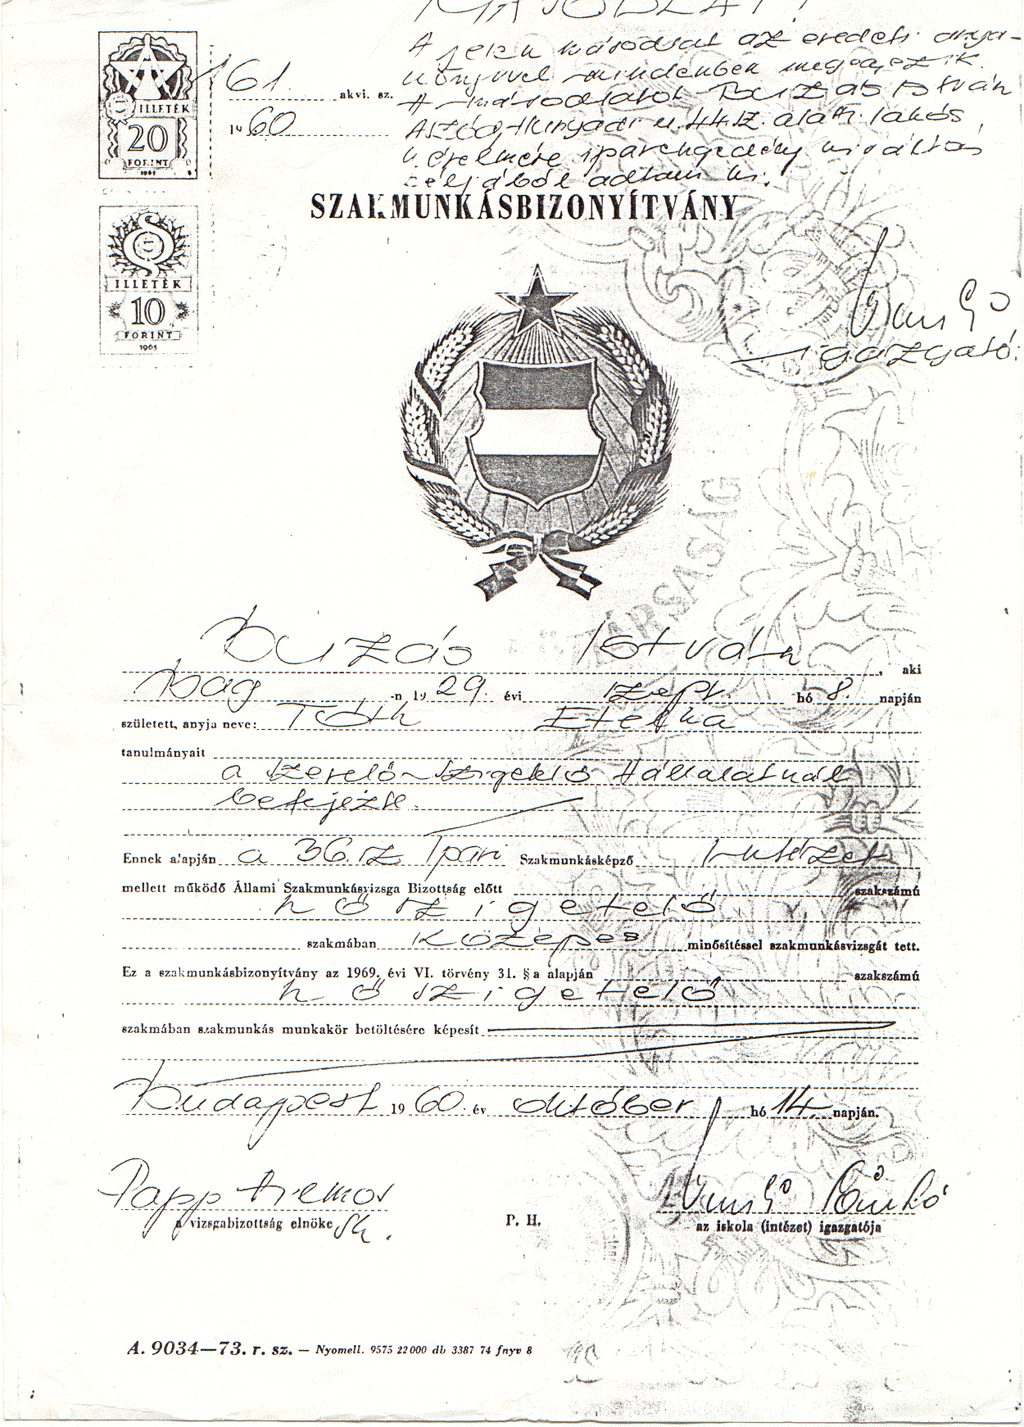 MÁSODLAT!
A jelen másodlat az eredeti anya-
könyvvel mindenben megegyezik.
A másodlatot Buzás István
Aszód, Hunyadi u. 44. sz. alatti lakós
kérelmére iparengedély kiváltás
céljából adtam ki.
ILLETÉK
20
FORINT
1965
161. akvi. sz.
1960
SZAKMUNKÁSBIZONYÍTVÁNY
ILLETÉK
10
FORINT
1965
igazgató.
Buzás István, aki
Bag -n 1929. évi szept. hó 8. napján
született, anyja neve: Tóth Etelka
tanulmányait
a Szerelő- Szigetelő Vállalatnál
befejezte.
Ennek alapján a 36. sz Ipari Szakmunkásképző Intézet
mellett működő Állami Szakmunkásvizsga Bizottság előtt szakszámú
hőszigetelő
szakmában közepes minősítéssel szakmunkásvizsgát tett.
Ez a szakmunkásbizonyítvány az 1969. évi VI. törvény 31. § a alapján szakszámú
hőszigetelő
szakmában szakmunkás munkakör betöltésére képesít
Budapest 1960. év október hó 14. napján.
Papp
a vizsgabizottság elnöke sk.
P. H.
az iskola (intézet) igazgatója
A. 9034—73. r. sz. — Nyomell. 9575 22000 db 3387 74 fnyv 8